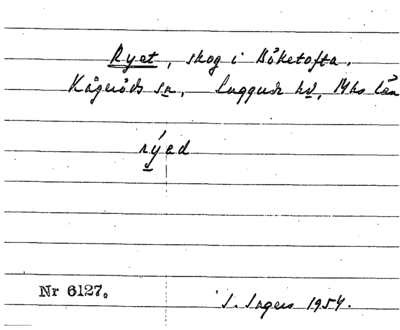 Ryet, skog i Böketofta.
Kågeröds sn, Luggude hd, Mhs län
rýed
Nr 6127.
S. Ingers 1954.